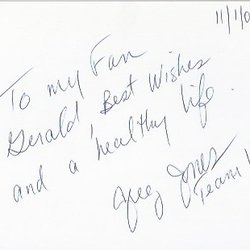 11/1/0
To my Fan
Gerald Best Wishes
and a healthy life.
Greg Jones
Team